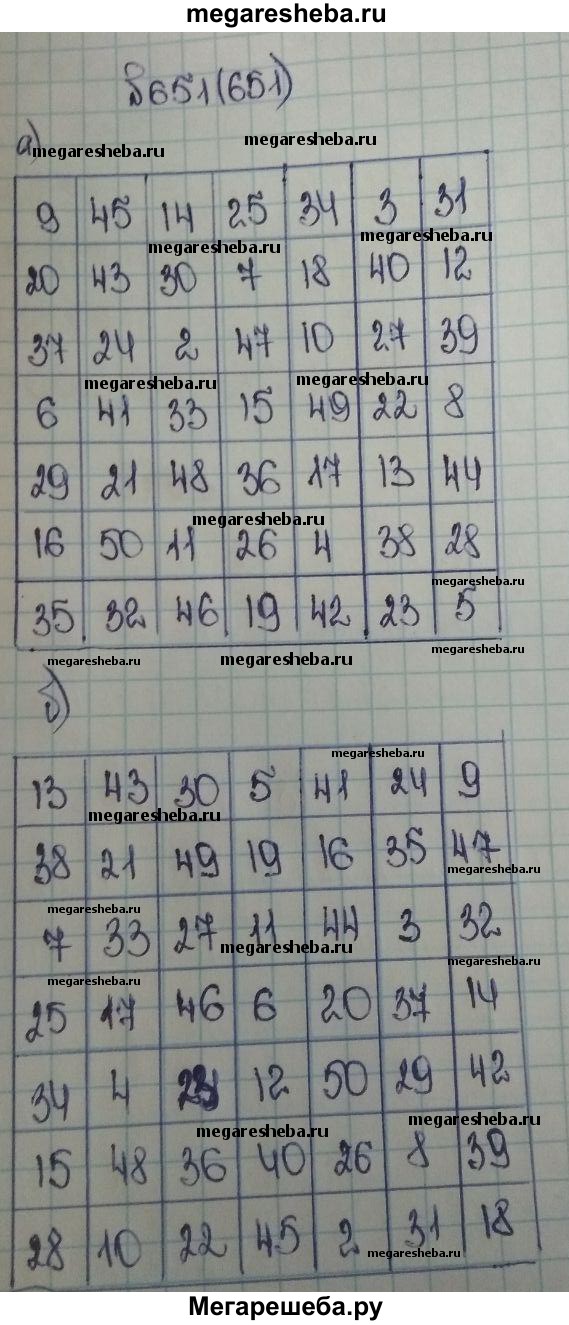 megaresheba.ru
№651(651)
а)
megaresheba.ru megaresheba.ru
9 45 14 25 34 3 31
megaresheba.ru megaresheba.ru
20 43 30 7 18 40 12
37 24 2 47 10 27 39
megaresheba.ru megaresheba.ru
6 41 33 15 49 22 8
29 21 48 36 17 13 44
megaresheba.ru
16 50 11 26 4 38 28
megaresheba.ru
35 32 46 19 42 23 5
megaresheba.ru megaresheba.ru megaresheba.ru
б)
megaresheba.ru
13 43 30 5 41 24 9
megaresheba.ru
38 21 49 19 16 35 47
megaresheba.ru
megaresheba.ru
7 33 27 11 44 3 32
megaresheba.ru
megaresheba.ru
megaresheba.ru
25 17 46 6 20 37 14
34 4 23 12 50 29 42
megaresheba.ru megaresheba.ru
15 48 36 40 26 8 39
28 10 22 45 2 31 18
megaresheba.ru
Мегарешеба.ру